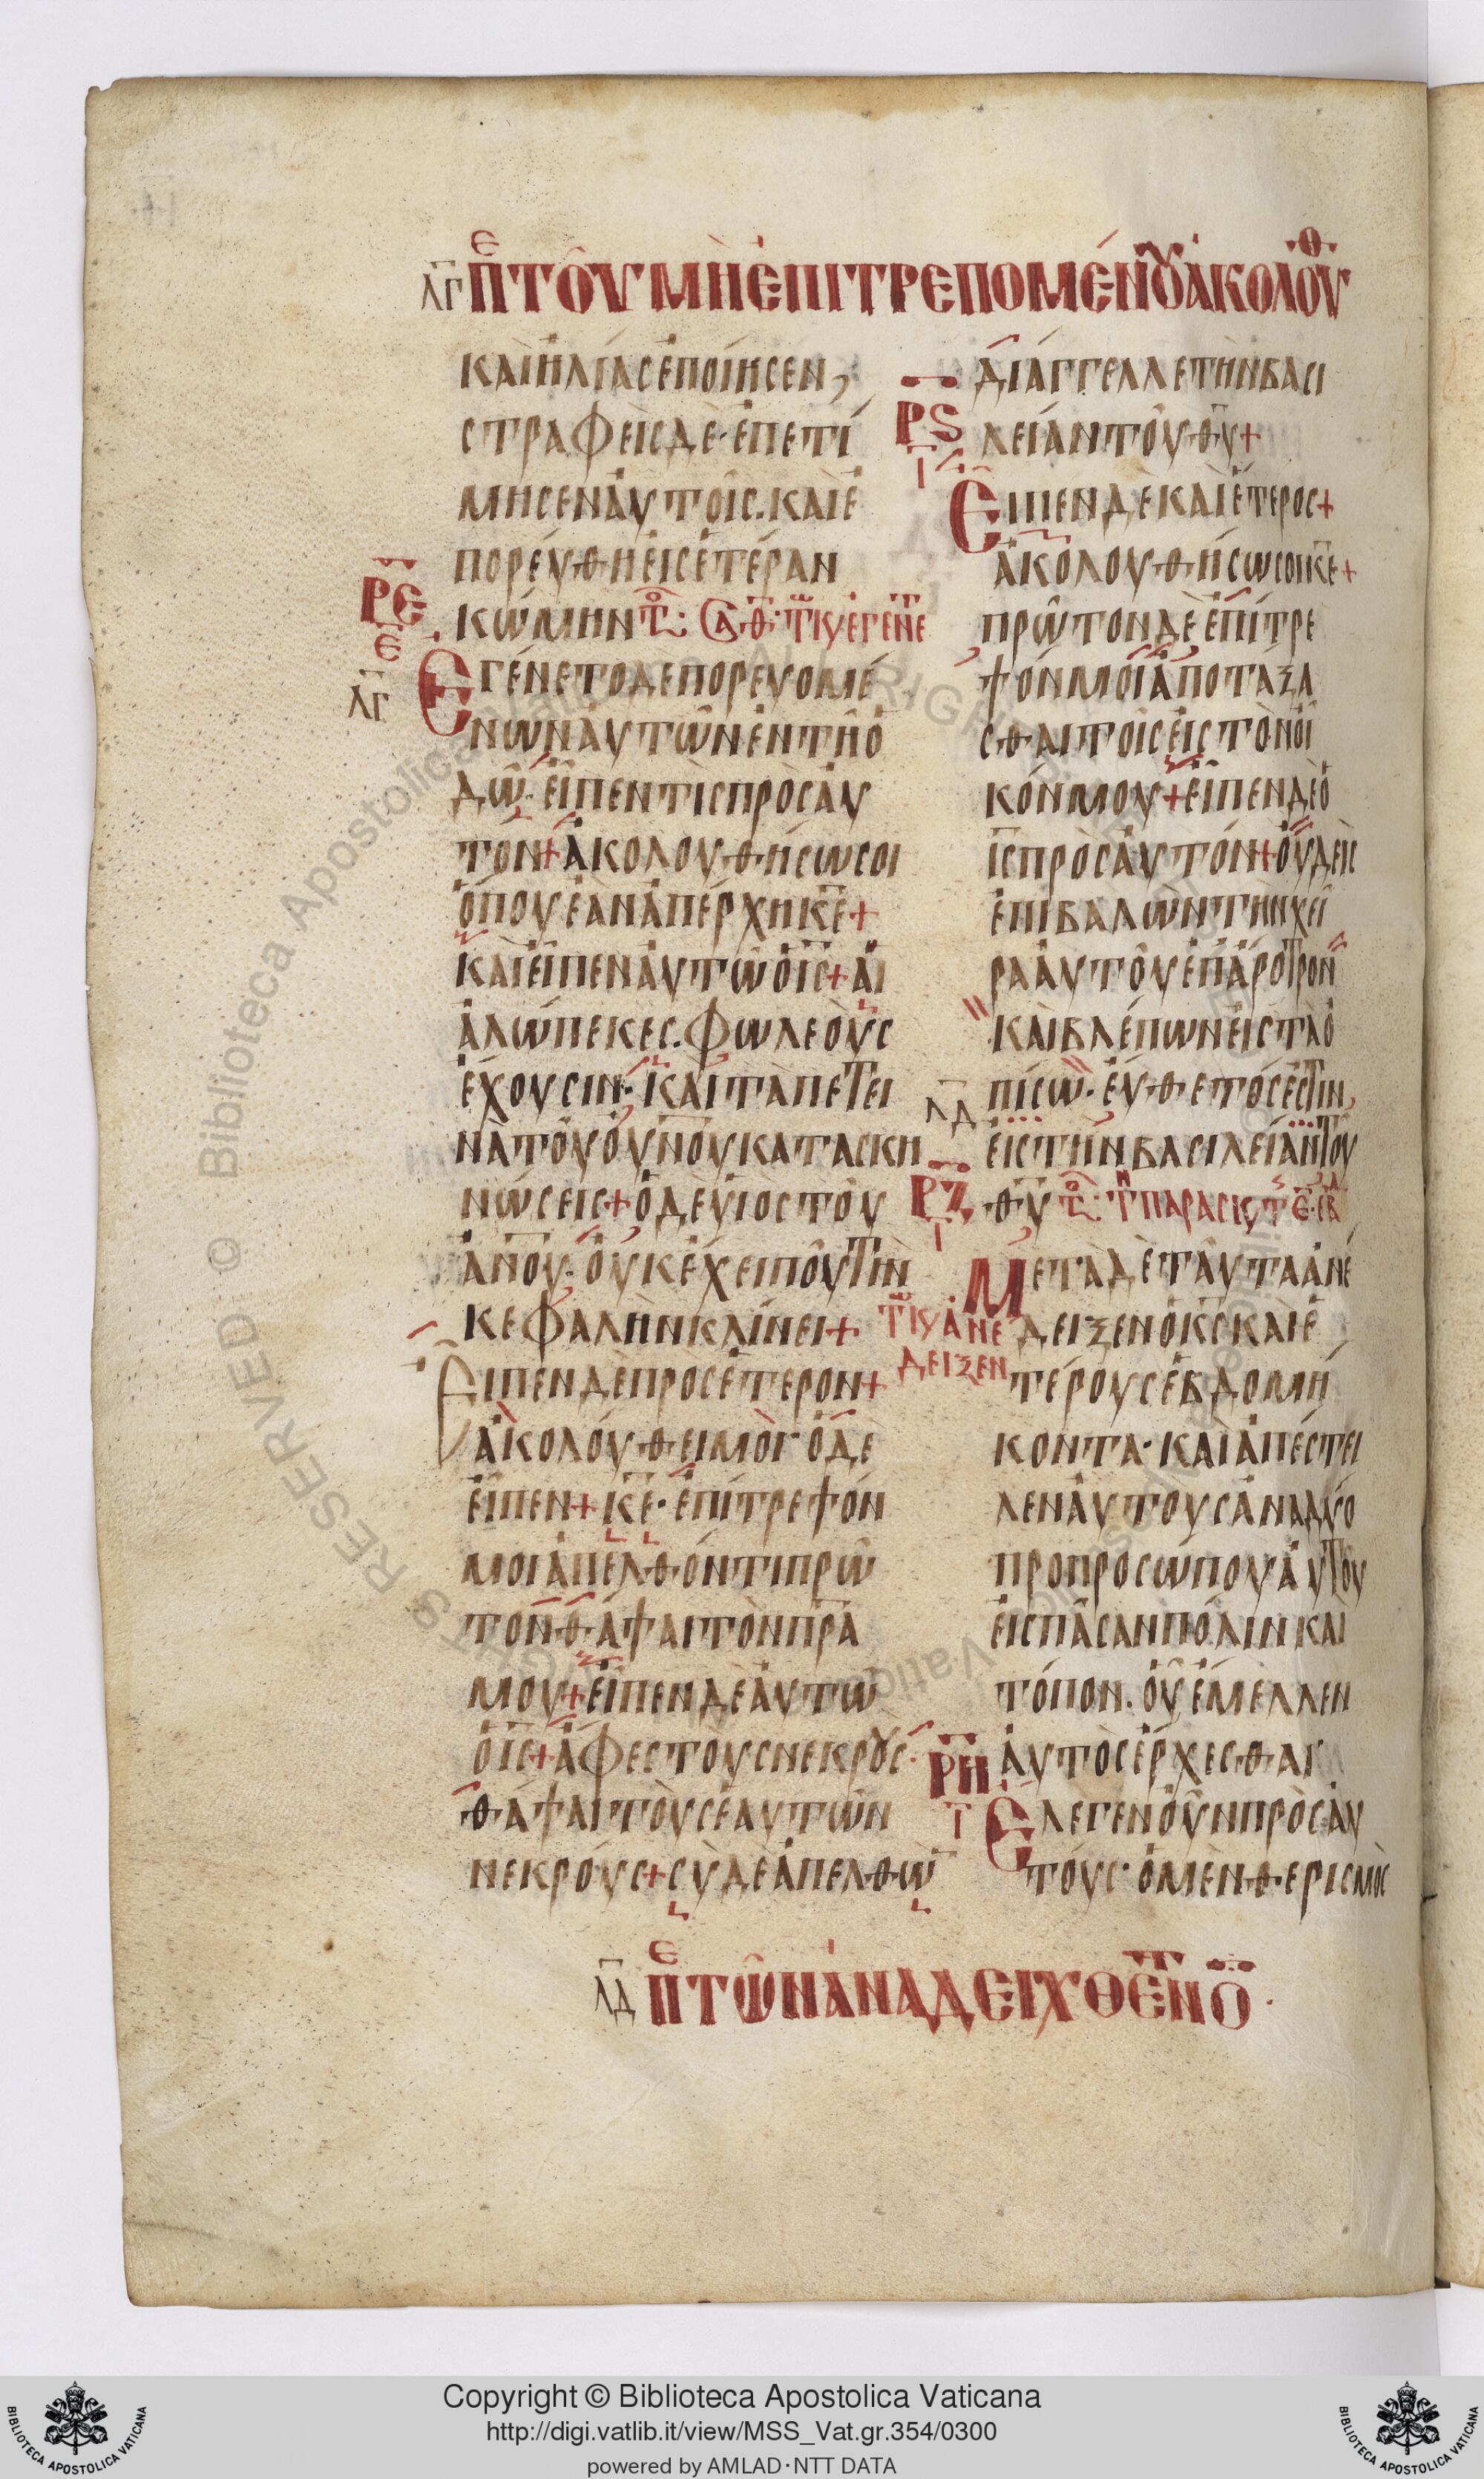 ΛΓ ΠΕ ΤΟΥ ΜΗ ΕΠΙΤΡΕΠΟΜΕΝΟΥ ΑΚΟΛΟΥΘ
ΚΑΙ ΗΛΙΑΣ ΕΠΟΙΗΣΕΝ,
ΣΤΡΑΦΕΙΣ ΔΕ· ΕΠΕΤΙ
ΜΗΣΕΝ ΑΥΤΟΙΣ. ΚΑΙ Ε
ΠΟΡΕΥΘΗ ΕΙΣ ΕΤΕΡΑΝ
ΡΕ
Ε
ΛΓ
ΚΩΜΗΝ
ΕΓΕΝΕΤΟ ΔΕ ΠΟΡΕΥΟΜΕ
ΝΩΝ ΑΥΤΩΝ ΕΝ ΤΗ Ο
ΔΩ· ΕΙΠΕΝ ΤΙΣ ΠΡΟΣ ΑΥ
ΤΟΝ + ΑΚΟΛΟΥΘΗΣΩ ΣΟΙ
ΟΠΟΥ ΕΑΝ ΑΠΕΡΧΗ ΚΕ +
ΚΑΙ ΕΙΠΕΝ ΑΥΤΩ Ο ΙΣ + ΑΙ
ΑΛΩΠΕΚΕΣ. ΦΩΛΕΟΥΣ
ΕΧΟΥΣΙΝ· ΚΑΙ ΤΑ ΠΕΤΕΙ
ΝΑ ΤΟΥ ΟΥΝΟΥ ΚΑΤΑΣΚΗ
ΝΩΣΕΙΣ + Ο ΔΕ ΥΙΟΣ ΤΟΥ
ΑΝΟΥ· ΟΥΚ ΕΧΕΙ ΠΟΥ ΤΗΝ
ΚΕΦΑΛΗΝ ΚΛΙΝΕΙ +
ΕΙΠΕΝ ΔΕ ΠΡΟΣ ΕΤΕΡΟΝ +
ΑΚΟΛΟΥΘΕΙ ΜΟΙ· Ο ΔΕ
ΕΙΠΕΝ + ΚΕ· ΕΠΙΤΡΕΨΟΝ
ΜΟΙ ΑΠΕΛΘΟΝΤΙ ΠΡΩ
ΤΟΝ ΘΑΨΑΙ ΤΟΝ ΠΡΑ
ΜΟΥ + ΕΙΠΕΝ ΔΕ ΑΥΤΩ
Ο ΙΣ + ΑΦΕΣ ΤΟΥΣ ΝΕΚΡΟΥΣ·
ΘΑΨΑΙ ΤΟΥΣ ΕΑΥΤΩΝ
ΝΕΚΡΟΥΣ + ΣΥ ΔΕ ΑΠΕΛΘΩ
ΔΙΑΓΓΕΛΛΕ ΤΗΝ ΒΑΣΙ
ΡϚ
Ι
ΛΕΙΑΝ ΤΟΥ ΘΥ +
ΕΙΠΕΝ ΔΕ ΚΑΙ ΕΤΕΡΟΣ +
ΑΚΟΛΟΥΘΗΣΩ ΣΟΙ ΚΕ +
ΠΡΩΤΟΝ ΔΕ ΕΠΙΤΡΕ
ΨΟΝ ΜΟΙ ΑΠΟΤΑΞΑ
ΣΘΑΙ ΤΟΙΣ ΕΙΣ ΤΟΝ ΟΙ
ΚΟΝ ΜΟΥ + ΕΙΠΕΝ ΔΕ Ο
ΙΣ ΠΡΟΣ ΑΥΤΟΝ + ΟΥΔΕΙΣ
ΕΠΙΒΑΛΩΝ ΤΗΝ ΧΕΙ
ΡΑ ΑΥΤΟΥ ΕΠ ΑΡΟΤΡΟΝ
ΚΑΙ ΒΛΕΠΩΝ ΕΙΣ ΤΑ Ο
ΠΙΣΩ· ΕΥΘΕΤΟΣ ΕΣΤΙΝ,
ΛΔ
ΕΙΣ ΤΗΝ ΒΑΣΙΛΕΙΑΝ ΤΟΥ
ΡΖ
Ι
ΘΥ
ΜΕΤΑ ΔΕ ΤΑΥΤΑ ΑΝΕ
ΤΩ ΚΥ ΑΝΕ
ΔΕΙΞΕΝ
ΔΕΙΞΕΝ Ο ΚΣ ΚΑΙ Ε
ΤΕΡΟΥΣ ΕΒΔΟΜΗ
ΚΟΝΤΑ· ΚΑΙ ΑΠΕΣΤΕΙ
ΛΕΝ ΑΥΤΟΥΣ ΑΝΑ ΔΥΟ
ΠΡΟ ΠΡΟΣΩΠΟΥ ΑΥΤΟΥ
ΕΙΣ ΠΑΣΑΝ ΠΟΛΙΝ ΚΑΙ
ΤΟΠΟΝ. ΟΥ ΕΜΕΛΛΕΝ
ΑΥΤΟΣ ΕΡΧΕΣΘΑΙ
ΡΗ
ΕΛΕΓΕΝ ΟΥΝ ΠΡΟΣ ΑΥ
ΤΟΥΣ· Ο ΜΕΝ ΘΕΡΙΣΜΟΣ
ΛΔ ΠΕ ΤΩΝ ΑΝΑΔΕΙΧΘΕΝΤ Ο
Copyright © Biblioteca Apostolica Vaticana
http://digi.vatlib.it/view/MSS_Vat.gr.354/0300
powered by AMLAD·NTT DATA
BIBLIOTECA APOSTOLICA VATICANA
BIBLIOTECA APOSTOLICA VATICANA